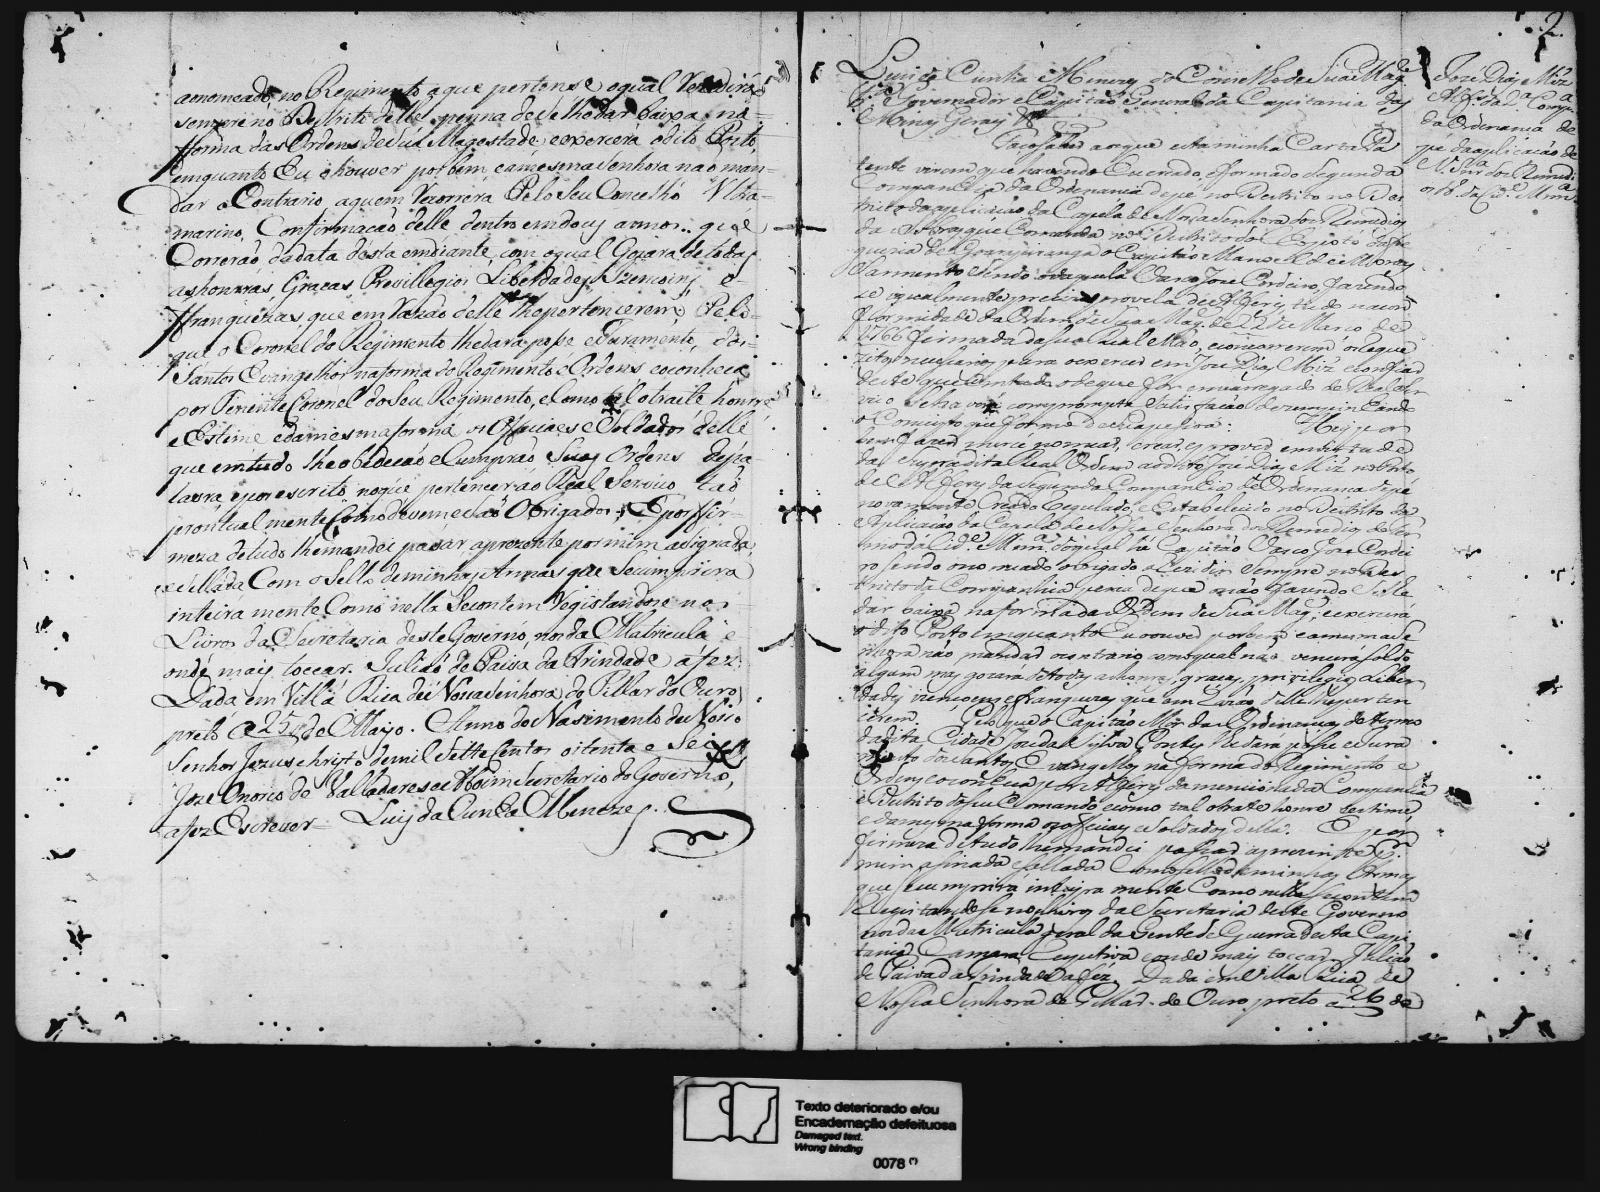 anomeado, no Regimento a que pertense o qual Rezedirá
sempre no Destrito delle, penna de se lhe dar baixa, na
forma das Ordens de Sua Magestade, exercerá o dito Posto,
emquanto Eu o houver por bem, e a mesma Senhora não man-
dar o Contrario, a quem Recorrera Pelo Seu Concelho Ultra-
marino, Confirmação delle dentro em dous annos, que
Correrão, da data desta em diante, com o qual Gozara de todas
as honrras, Graças Previllegios Liberdades, Izençoins, e
franquezas, que em Razão delle lhe pertencerem; Pelo
que o Coronel do Regimento lhe dará posse e Juramento, dos
Santos Evangelhos na forma do Regimento, e Ordens e o conheça
por Tenente Coronel do Seu Regimento, e Como tal o traite honrre
e Estime e da mesma forma os Officiaes e Soldados delle
que em tudo lhe obedeção e Cumprão Suas Ordens de pa-
lavra, e por escrito, no que pertencer ao Real Serviço tão
prontual mente Como devem e são Obrigados; E por fir-
meza de tudo lhe mandei passar a prezente por mim asignada,
e Sellada Com o Sello de minhas Armas que Se cumprira
inteira mente Como nella Se contem Registandose nos
Livros da Secretaria deste Governo, nos da Matricula e
onde mais toccar. Julião de Paiva da Trindade a fez.
Dada em Villa Rica de Nossa Senhora do Pillar do Ouro
preto a 25 de Mayo. Anno do Nasimento de Nosso
Senhor Jezus christo de mil Sette Centos oitenta e Seis
Joze Onorio de Valladares e Aboim Secretario do Governo,
a fez Escrever = Luis da Cunha Menezes.
2
Luis da Cunha Menezes do Conselho de Sua Mag.de
Governador e Capitão General da Capitania das
Minas Geraes
Faço saber aos que esta minha Carta Pa
tente virem que havendo Eu creado, e formado Segunda
Companhia da Ordenança de pé no Destrito no Des
trito da aplicação da Capéla de Nossa Senhora dos Remedios
Comanda no Destrito do
o Capitão Manoel de Moraes
Sarmento Sendo Vasco Joze Cordeiro, fazendo
se igualmente precizo provela de Alferes, tudo na con
formidade da Ordem de Sua Mag.de de 22 de Março de
1766 firmada da sua Real Mão, e concorrerem os reque
zitos necessarios para o exercer em Joze Dias Miz
de que em tudo o de que for encarregado do Real Ser
viço se haverá com prompta Satisfação
o Conceito que formo de sua pessoa: Hei por
bem fazer mercê nomear, crear e prover em virtude
da Supradita Real Ordem ao dito Joze Dias Miz no Posto
de Alferes da Segunda Companhia de Ordenança de pé
novamente Creado Regulado, e Estabelecido no Destrito da
Aplicação da Capela de Nossa Senhora dos Remedios do Ter
mo da Cid.e Mariana do qual hé Capitão Vasco Joze Cordei
ro sendo o nomeado obrigado a Rezidir Sempre no Des
trito da Companhia pena de que o não fazendo Se lhe
dar baixa na forma da Ordem de Sua Mag.de, e exercerá
o dito Posto emquanto Eu o ouver por bem e a mesma Se
nhora não mandar o contrario com o qual não vencerá soldo
algum mas gozara de todas as honras, graças, privilegios, Liber
dades, izençoens, e franquezas, que em razão delle lhe perten
cerem. Pelo que o Capitão Mór das Ordenanças do termo
da dita Cidade Joze da Silva Pontes lhe dará posse e jura
mento dos Santos Evangelhos na forma do Regimento e
Ordens e o conheça por Alferes da mencionada Companhia
e Destrito de seu Comando e como tal o trate honre e estime,
e da mesma forma os officiaes e Soldados della. E por
firmeza de tudo lhe mandei passar a prezente por
mim asinada e sellada Com o sello de minhas Armas
que se cumprirá inteira mente Como nella se contem
Registandose nos livros da Secretaria deste Governo
nos da Matricula geral da Gente de Guerra desta Capi
tania, Camara e onde mais toccar. Julião
de Paiva da Trindade a fez. Dada em Villa Rica de
Nossa Senhora do Pillar do Ouro preto a 26 de
Joze Dias Miz
Alf.es da 2.a Comp.a
da Ordenança de
pe da aplicação de
N. Snr.a dos Remedi
os da Cid.e Mar.na
Texto deteriorado e/ou
Encadernação defeituosa
Damaged text.
Wrong binding
0078 (*)